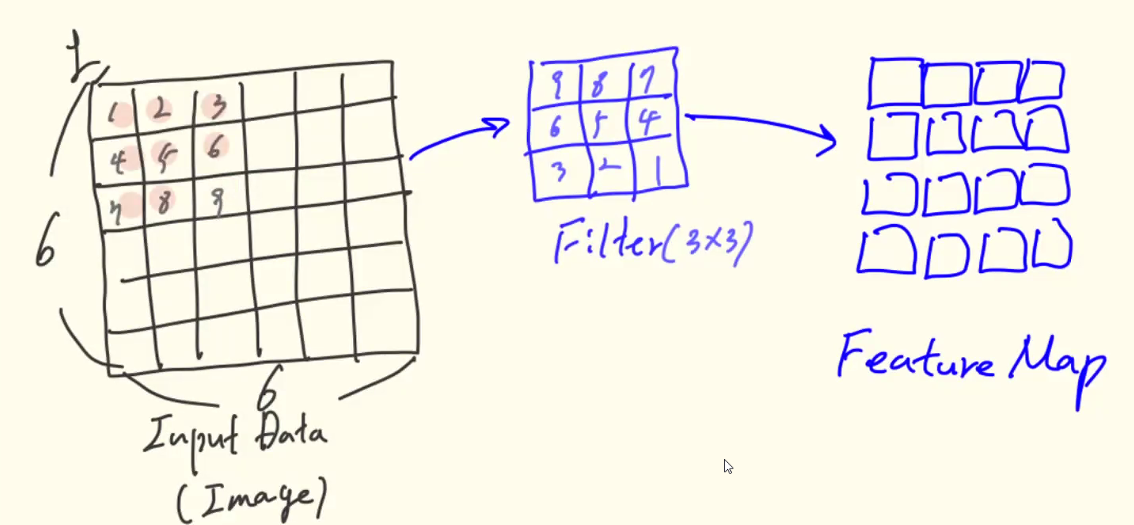 1
1 2 3
4 5 6
7 8 9
6
6
Input Data
(Image)
9 8 7
6 5 4
3 2 1
Filter(3×3)
Feature Map